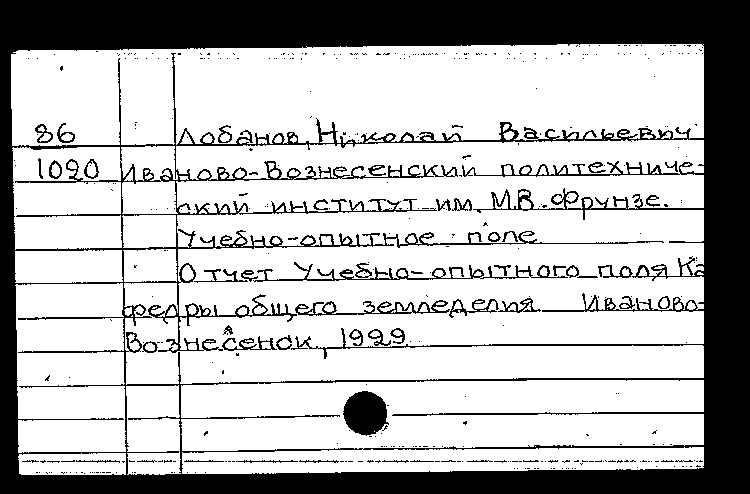 86 Лобанов, Николай Васильевич
1020 Иваново-Вознесенский политехниче-
ский институт им. М.В.Фрунзе.
Учебно-опытное поле
Отчет Учебно-опытного поля Ка
федры общего земледелия Иваново-
Вознесенск, 1929